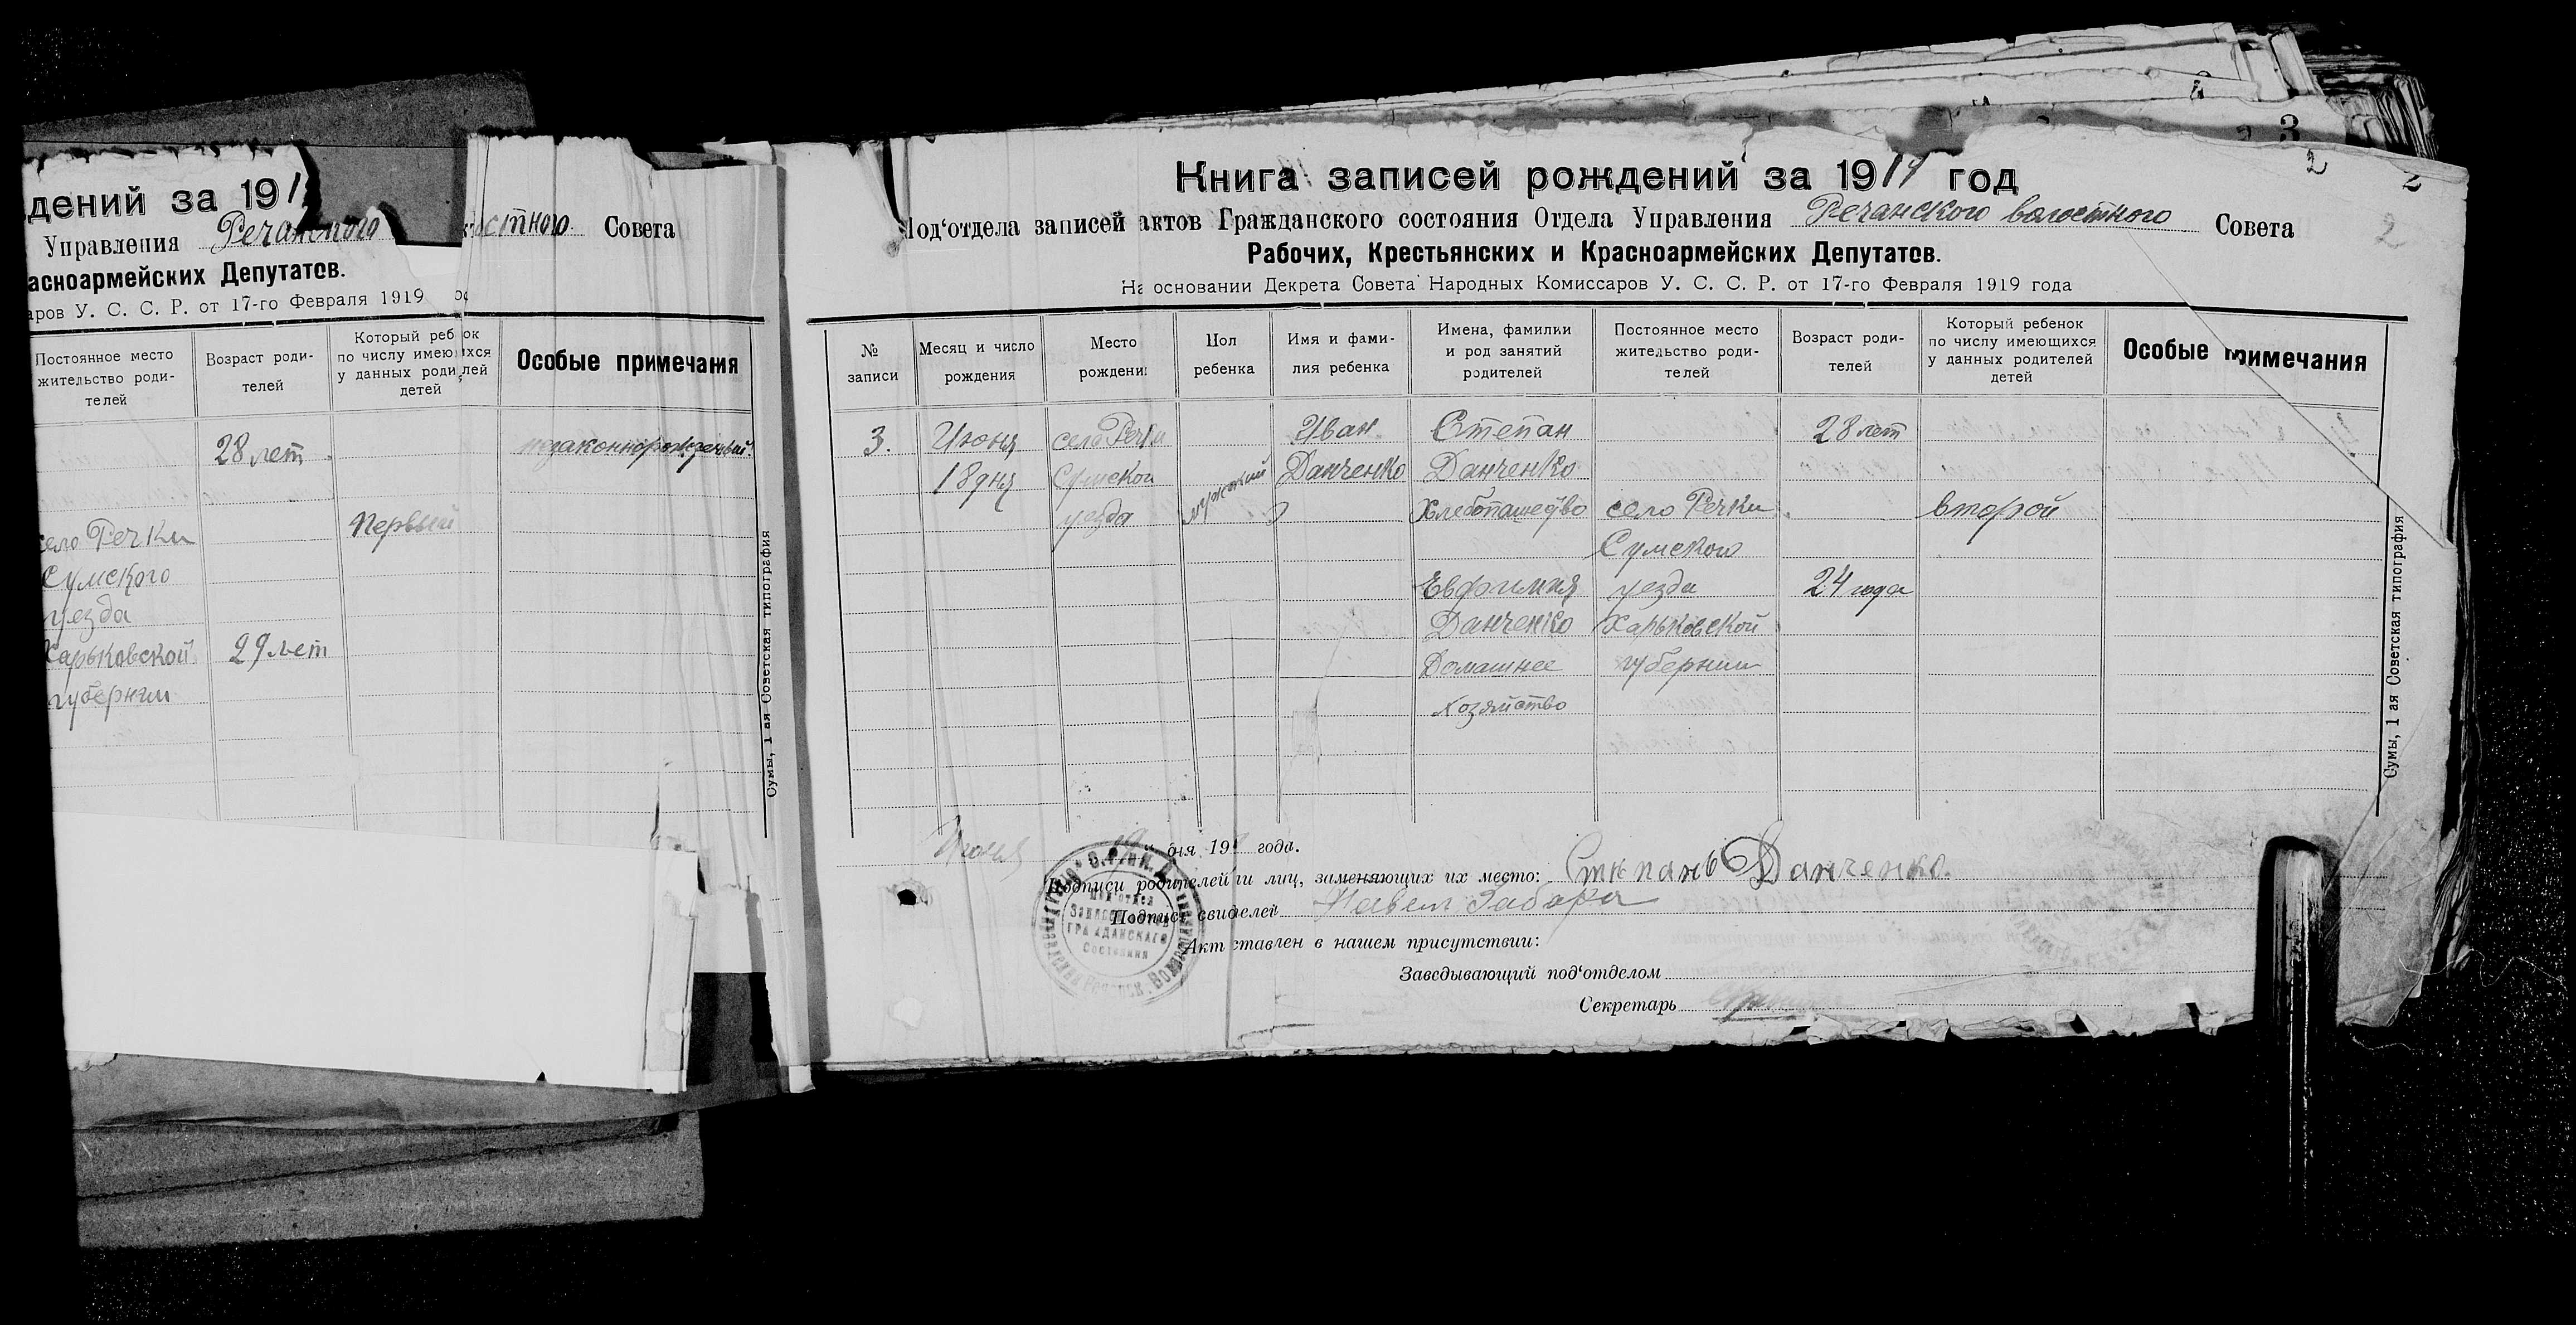 дений за 191
Управления Речанского
остного Совета
асноармейских Депутатов.
аров У. С. С. Р. от 17-го Февраля 1919
Постоянное место жительство роди-телей
Возраст роди-телей
Который ребенок по числу имеющихся у данных родителей детей
Особые примечания
28 лет
незаконнорожденный
Первый
село Речки
Сумского
уезда
Харьковской
29 лет
губернии
Сумы, 1 ая Советская типография
2
2
3
2
Книга записей рождений за 1919 год
Под'отдела записей актов Гражданского состояния Отдела Управления Речанского волостного Совета
Рабочих, Крестьянских и Красноармейских Депутатов.
На основании Декрета Совета Народных Комиссаров У. С. С. Р. от 17-го Февраля 1919 года
№ записи
Месяц и число рождения
Место рождения
Пол ребенка
Имя и фами-лия ребенка
Имена, фамилии и род занятий родителей
Постоянное место жительство роди-телей
Возраст роди-телей
Который ребенок по числу имеющихся у данных родителей детей
Особые примечания
3. Июня село Речки Иван Степан 28 лет
18 дня Сумского мужский Данченко Данченко
уезда Хлебопашество село Речки второй
Сумского
Евфимия уезда 24 года
Данченко Харьковской
Домашнее губернии
хозяйство
Сумы, 1 ая Советская типография
Июня 19 дня 191 года.
Подписи родителей или лиц, заменяющих их место: Стѣпанъ Данченко.
Подписи свидетелей Павел Забара
Акт составлен в нашем присутствии:
Заведывающий под'отделом
Секретарь
Под'отдел
Записей Актов
ГРАЖДАНСКАГО
Состояния